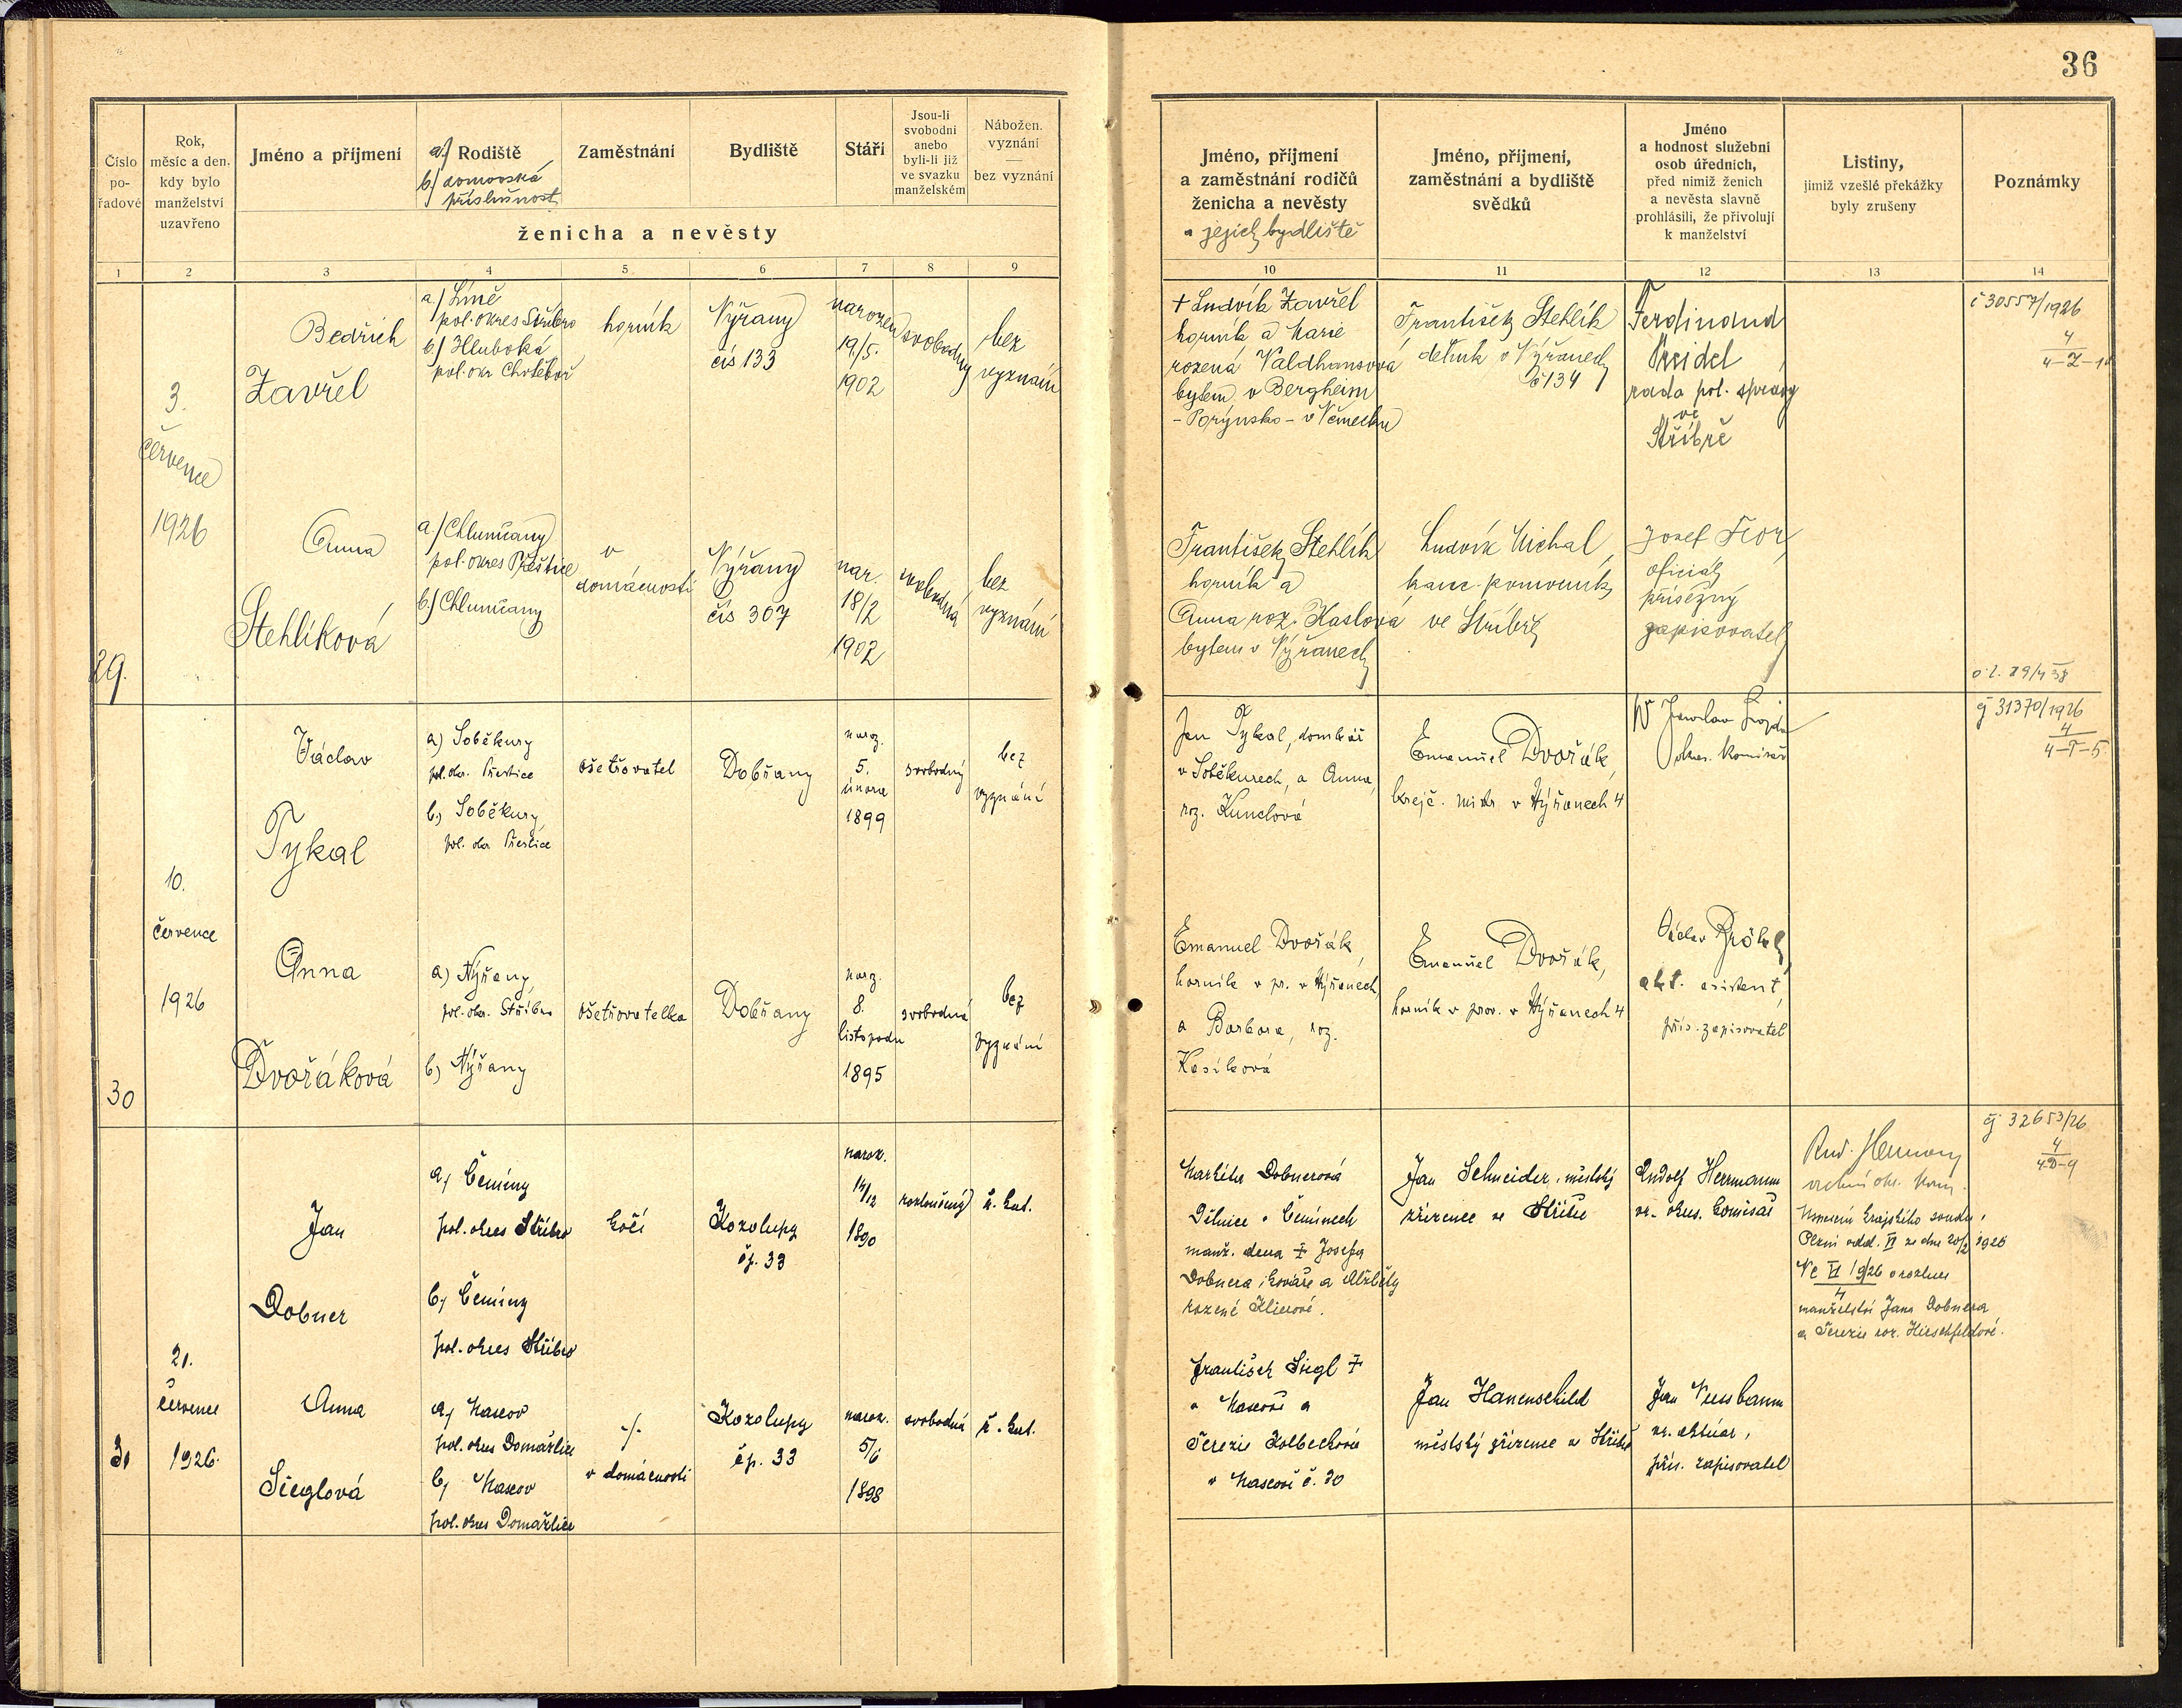 36
Číslo
po-
řadové
Rok,
měsíc a den,
kdy bylo
manželství
uzavřeno
Jméno a příjmení
a.) Rodiště
b.) domovská
příslušnost
Zaměstnání
Bydliště
Stáří
Jsou-li
svobodni
anebo
byli-li již
ve svazku
manželském
Nábožen.
vyznání
—
bez vyznání
ženicha a nevěsty
1 2 3 4 5 6 7 8 9
Jméno, příjmení
a zaměstnání rodičů
ženicha a nevěsty
a jejich bydliště
Jméno, příjmení,
zaměstnání a bydliště
svědků
Jméno
a hodnost služební
osob úředních,
před nimiž ženich
a nevěsta slavně
prohlásili, že přivolují
k manželství
Listiny,
jimiž vzešlé překážky
byly zrušeny
Poznámky
10 11 12 13 14
29.
3.
července
1926
Bedřich
Zavřel
a.) Líně
pol. okres Stříbro
b.) Hluboká
pol. okr Chotěboř
horník
Nýřany
čís 133
narozen
19/5.
1902
svobodný
bez
vyznání
+ Ludvík Zavřel
horník a Marie
rozená Valdhansová
bytem v Bergheim
- Porýnsko - v Německu
František Stehlík
dělník v Nýřanech
č 134
Ferdinand
rada pol. správy
ve
Stříbře
č 30557/1926
4
Anna
Stehlíková
a.) Chlumčany
pol. okres Přeštice
b.) Chlumčany
v
domácnosti
Nýřany
čís 307
nar.
18/2
1902
svobodná
bez
vyznání
František Stehlík
horník a
Anna roz. Kaslová
bytem v Nýřanech
Ludvík Michal,
kanc. pomocník
ve Stříbře
Josef Flor
oficiál
přísežný
zapisovatel
30
10.
července
1926
Václav
Tykal
a) Soběkury
pol. okr. Přeštice
b) Soběkury,
pol. okr. Přeštice
ošetřovatel
Dobřany
naroz.
5.
února
1899
svobodný
bez
vyznání
Jan Tykal, domkář
v Soběkurech, a Anna,
roz. Kunclová
Emanuel Dvořák,
krejč. mistr v Nýřanech 4
okres. komisař
čj 31370/1926
4
4-T-5
Anna
Dvořáková
a) Nýřany,
pol. okr. Stříbro
b) Nýřany
ošetřovatelka
Dobřany
naroz.
8.
listopadu
1895
svobodná
bez
vyznání
Emanuel Dvořák,
horník v pr. v Nýřanech,
a Barbora, roz.
Kasíková
Emanuel Dvořák,
horník v prov. v Nýřanech 4
Václav
asistent,
přís. zapisovatel
31
21.
července
1926.
Jan
Dobner
a) Čeminy
pol. okres Stříbro
b) Čeminy
pol. okres Stříbro
kočí
Kozolupy
čp. 33
naroz.
14/12
1890
rozloučený
ř. kat.
Markéta Dobnerová
Dělnice v Čeminech
manž. dcera + Josefa
Dobnera, kováře a Alžběty
rozené Klierové.
Jan Schneider, městský
zřízenec ve Stříbře
Rudolf Herrmann
vr. okres. komisař
Rud. Hermann
vrchní okr. kom.
Usnesení krajského soudu v
Plzni odd. VI ze dne 20/2 1926
Nc VI 19/26 o rozluce
4
manželství Jana Dobnera
a Terezie roz. Hirschfeldové.
čj 32653/26
4
4-D-9
Anna
Sieglová
a) Mascov
pol. okres Domažlice
b) Mascov
pol. okres Domažlice
-/-
v domácnosti
Kozolupy
čp. 33
naroz.
5/6
1898
svobodná
ř. kat.
František Siegl +
v Mascově a
Terezie Kolbeckové
v Mascově č. 30
Jan Hanenschild
městský zřízenec ve Stříbře
Jan Nussbaum
vr. aktuár,
přís. zapisovatel